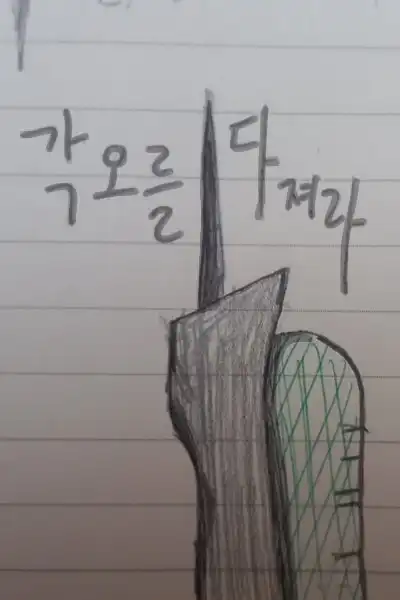 각오를 다져라